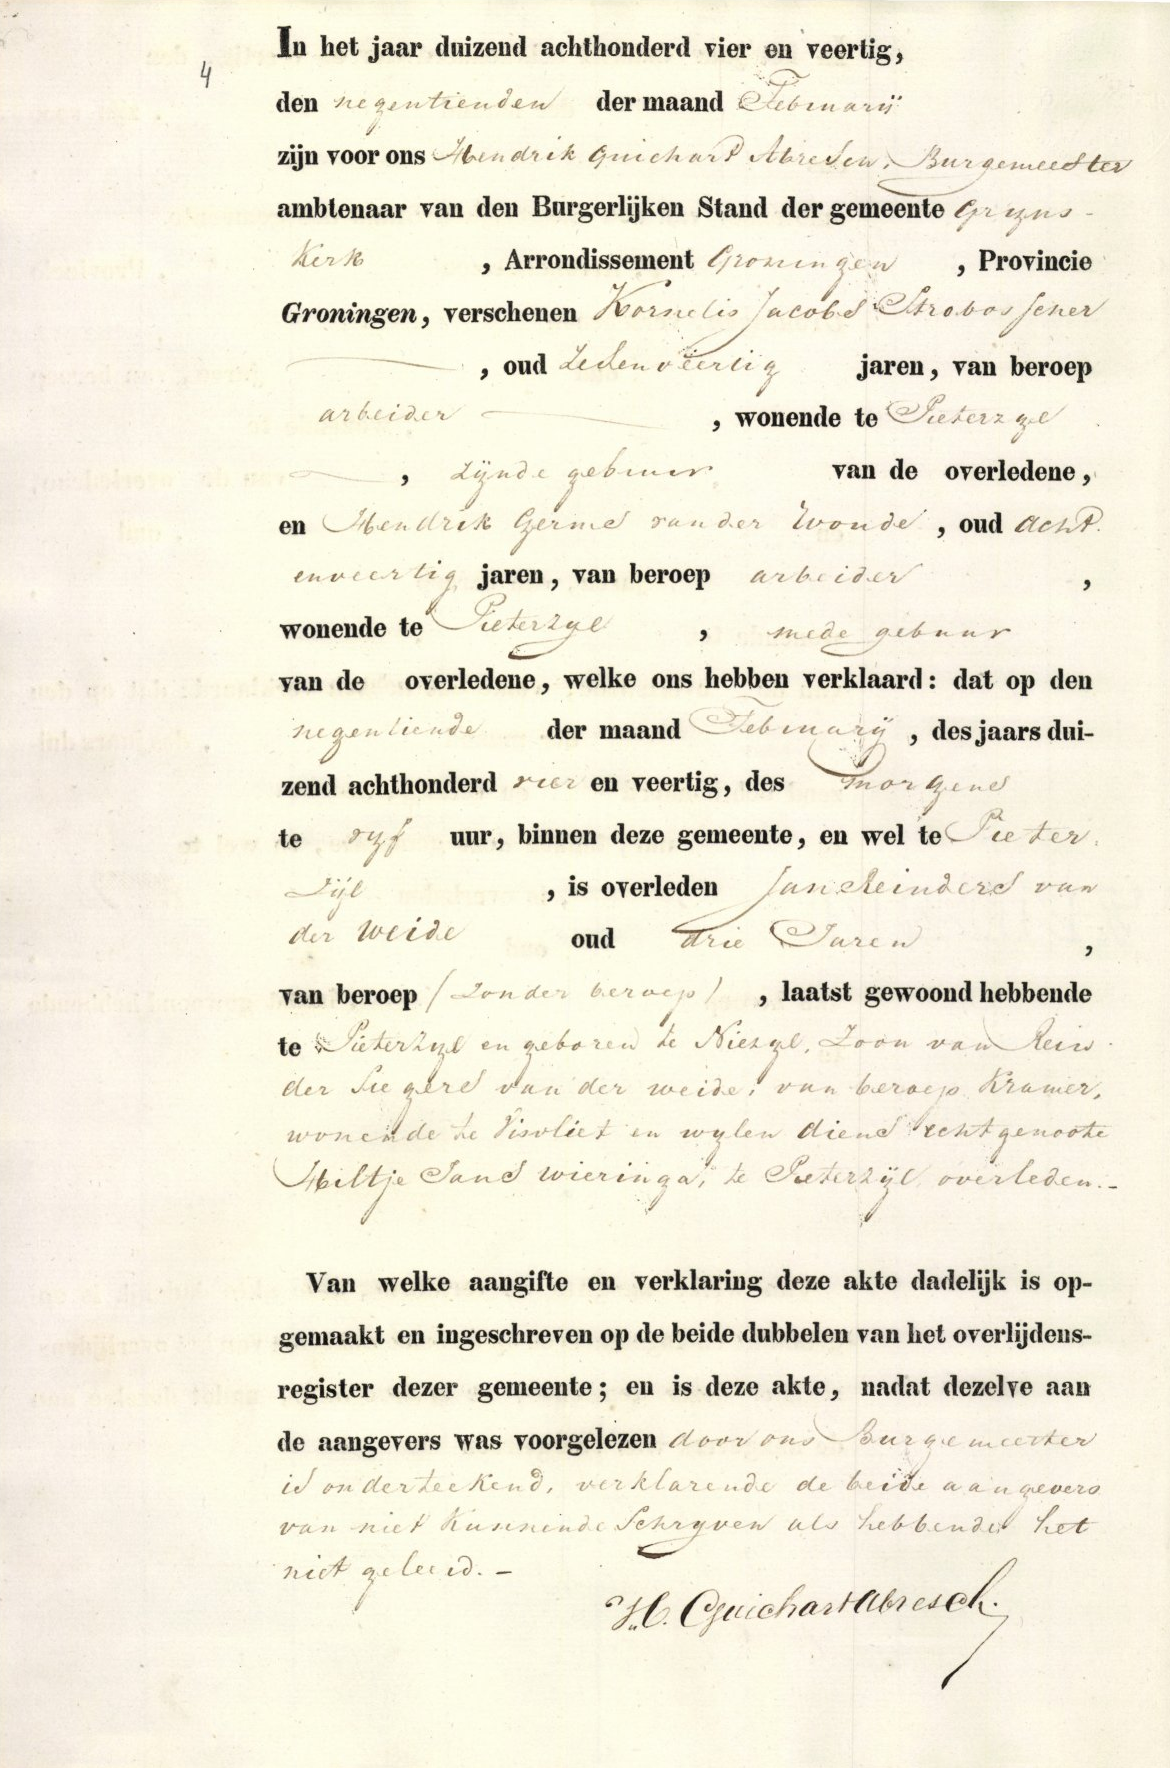 4
In het jaar duizend achthonderd vier en veertig,
den negentienden der maand Februarij
zijn voor ons Hendrik Guichart Abresch, Burgemeester
ambtenaar van den Burgerlijken Stand der gemeente Gryps-
kerk , Arrondissement Groningen , Provincie
Groningen, verschenen Kornelis Jacobs Strobosscher
, oud zedenveertig jaren, van beroep
arbeider , wonende te Pieterzyl
, zijnde gebuur van de overledene,
en Hendrik Germs van der Woude , oud acht
enveertig jaren, van beroep arbeider ,
wonende te Pieterzyl , mede gebuur
van de overledene, welke ons hebben verklaard: dat op den
negentiende der maand Februarij , des jaars dui-
zend achthonderd vier en veertig, des morgens
te vyf uur, binnen deze gemeente, en wel te Pieter
zijl , is overleden Jan Reinders van
der Weide oud drie Jaren ,
van beroep (zonder beroep) , laatst gewoond hebbende
te Pieterzyl en geboren te Niezyl, Zoon van Rein
der Siegers van der weide, van beroep Kramer,
wonende te Visvliet en wylen diens echtgenoote
Hiltje Jans Wieringa, te Pieterzijl overleden.-
Van welke aangifte en verklaring deze akte dadelijk is op-
gemaakt en ingeschreven op de beide dubbelen van het overlijdens-
register dezer gemeente; en is deze akte, nadat dezelve aan
de aangevers was voorgelezen door ons Burgemeester
is onderteekend, verklarende de beide aangevers
van niet kunnende Schryven als hebbende het
niet geleerd.-
H. Guichart Abresch.